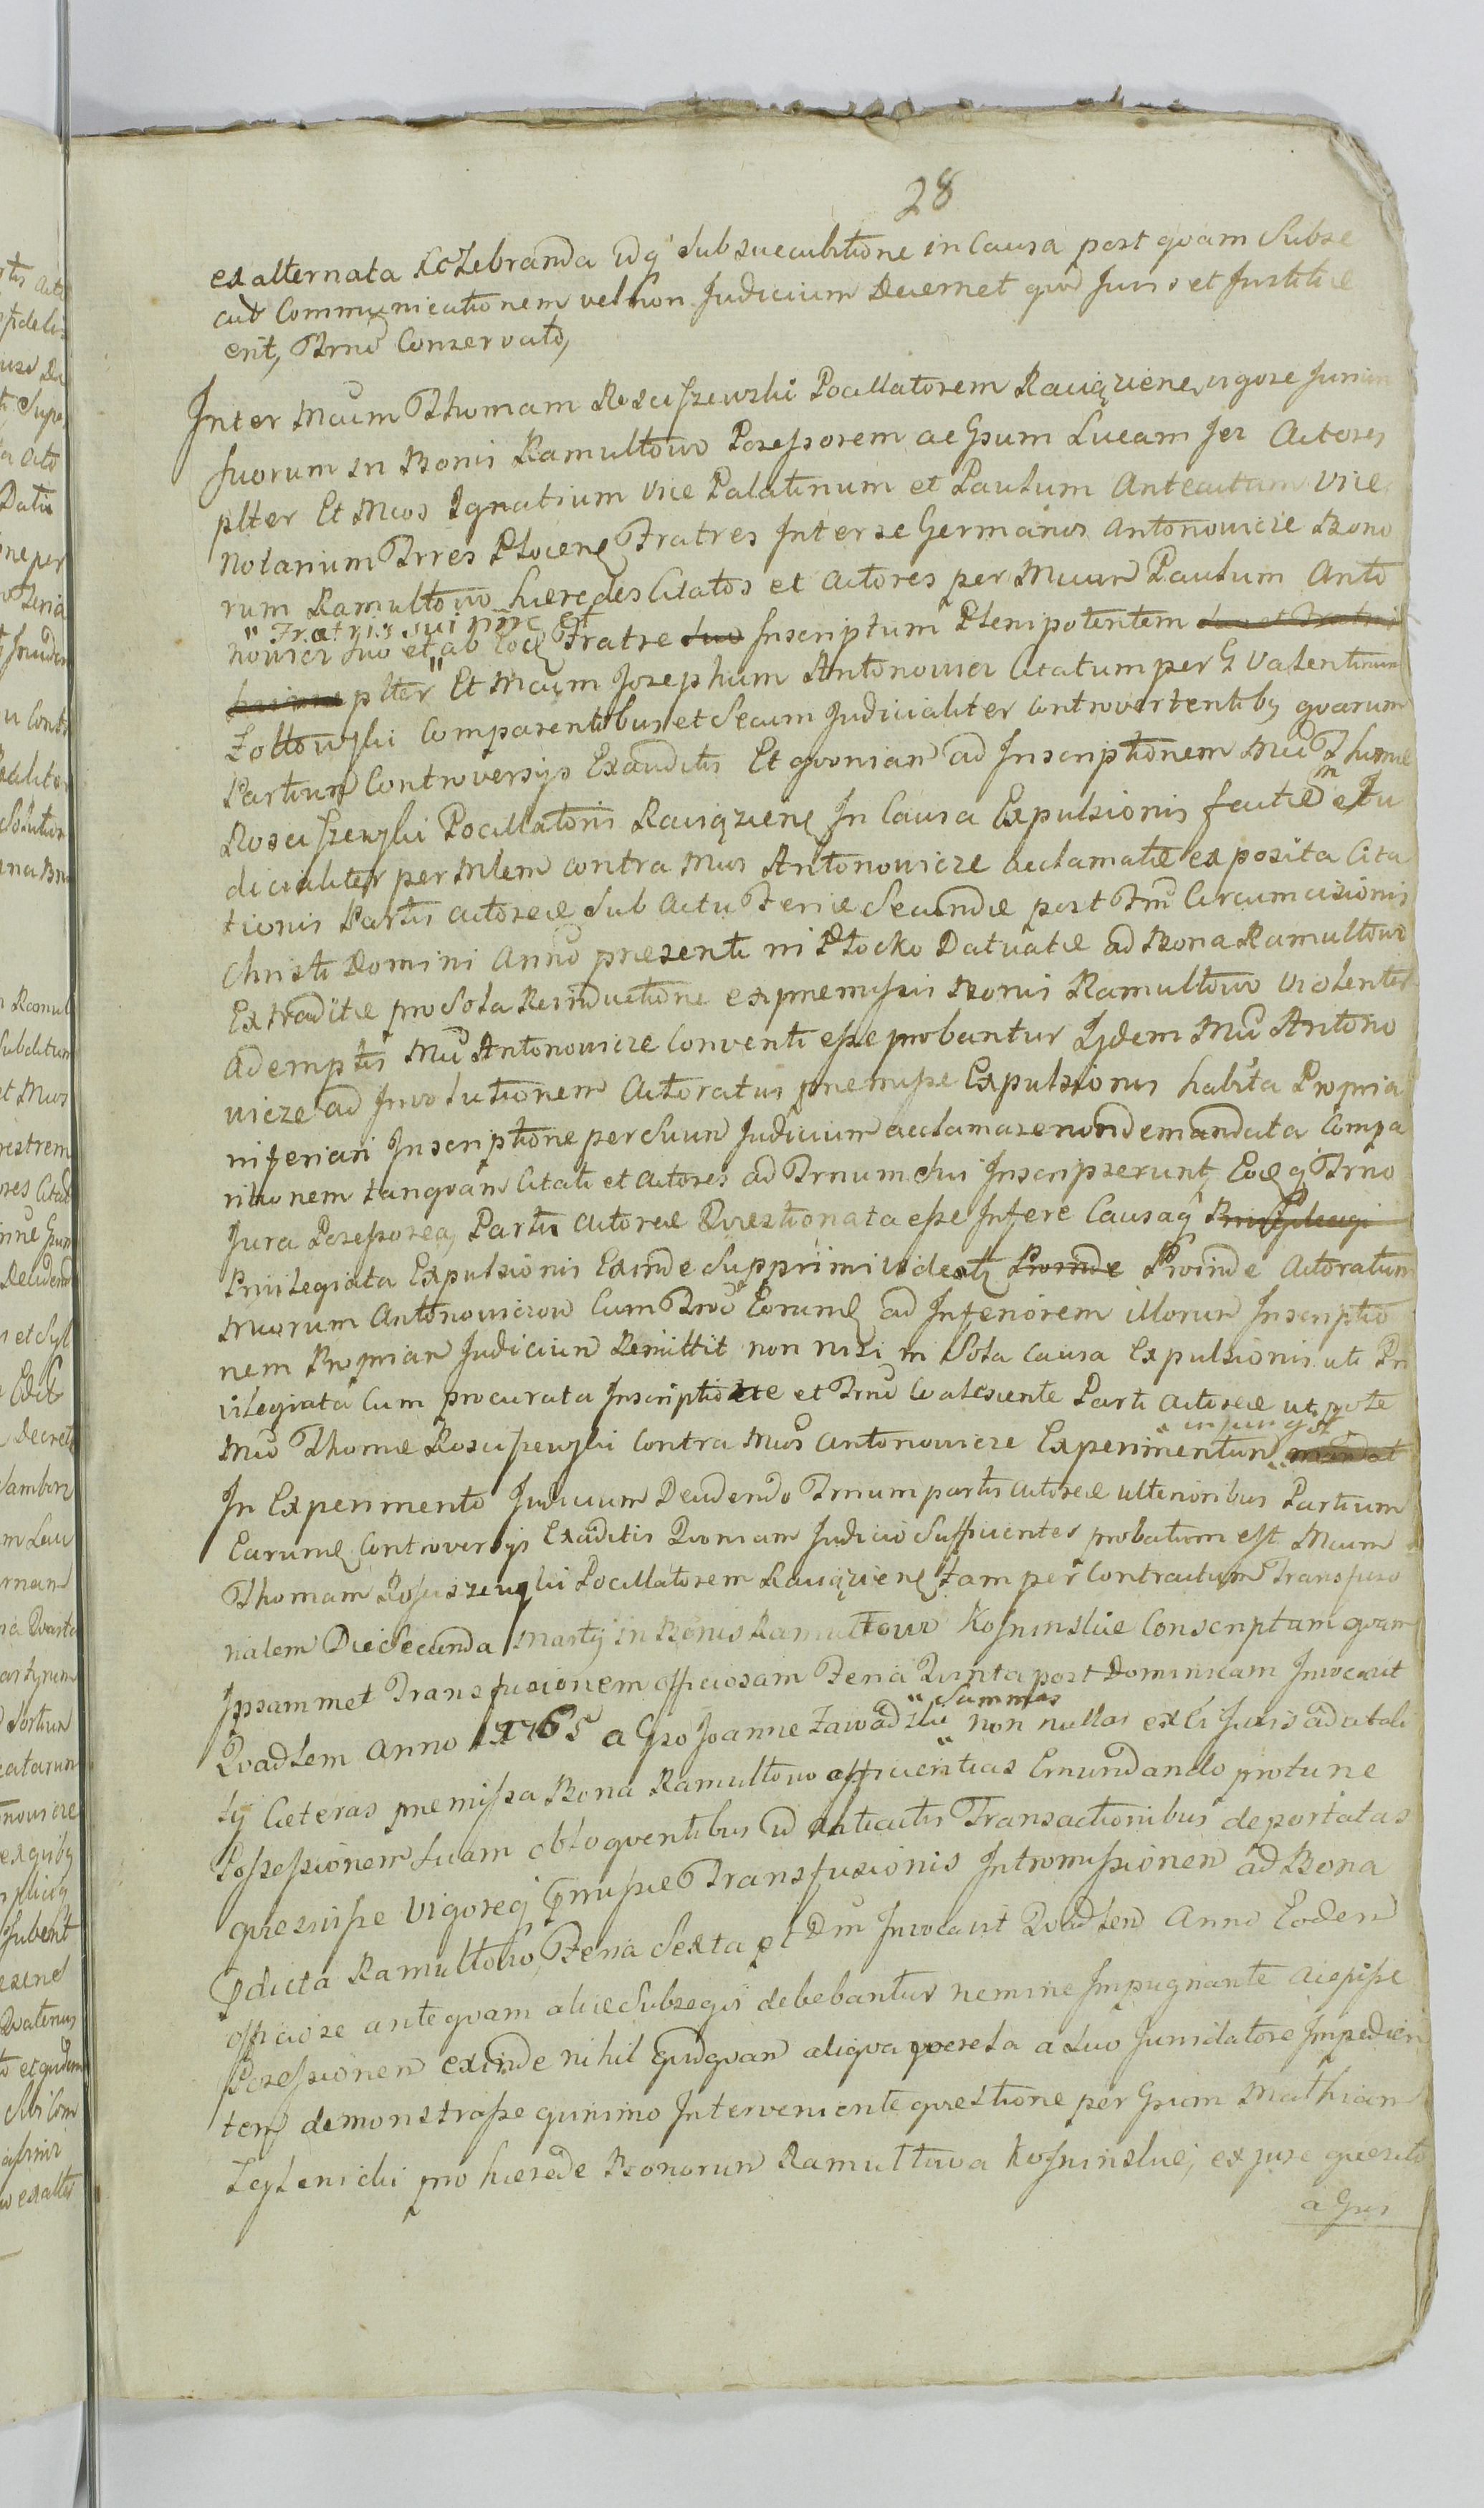 28
ex alternata Celebranda idq sub succubitione in Causa post qvam Subse
cut Communicationem vel non Judicium Decernet qvod Juris et Justitiæ
erit, Trno Conservato,
Inter Mcum Thomam Rosciszewski Pocillatorem Raciązienę vigore Jurium
suorum in Bonis Ramultowo Possessorem ac Gsum Lucam Jez Actores
plter Et Mcos Ignatium Vice Palatinum et Paulum Anteactum Vice
Notarium Trres Plocenę Fratres Inter se Germanos Antonowicze Bono
rum Ramultowo hæredes Citatos et Actores per Mcum Paulum Anto
" Fratris sui nõie et
nowicz suo et ab eoď Fratre suo Inscriptum Plenipotentem
plter " Et Mcum Josephum Antonowicz Citatum per G Valentinum
Zoltowski Comparentibus et Secum Judicialiter Controvertentibq qvarum
Partium Controversys Exauditis Et qvoniam ad Inscriptionem Mci Thomæ
Rosciszewski Pocillatoris Raciązienę In Causa Expulsionis factæ m et Ju
dicialiter per Mlem contra Mcos Antonowicze acclamatæ exposita Cita
tionis Partis Actoreæ Sub Actu Feriæ Secundæ post Fm Circumcisionis
Christi Domini Anno presenti in Plocko Datuatæ ad Bona Ramultowo
Extraditæ pro Sola Reinductione ex premissis Bonis Ramultowo violenter
ademptis Mci Antonowicze Conventi esse probantur Ijdem Mci Antono
wicze ad Involutionem Actoratus premissæ Expulsionis habita Propria
inferiori Inscriptione per Suum Judicium acclamare non demandata Compa
ritionem tanqvam Citati et Actores ad Trnum sui Inscripserunt, Eoq Trno
Jura Possessorea Partis Actoreæ Qvestionata esse Infere Causaq
Privilegiata Expulsionis Exinde Supprimi videatz Proinde Proinde Actoratum
Mcorum Antonowiczow Cum Trno Eorumď ad Inferiorem illorum Inscriptio
nem Propriam Judicium Remittit non nisi in Sola Causa Expulsionis uti Pri
vilegiata Cum procurata Inscriptione et Trno Coalescente Parti Actoreæ utpote
" injungit
Mco Thomæ Rosciszewski Contra Mcos Antonowicze Experimentum " mandat
In Experimento Judicium Deudendo Trnum partis actoreæ ulterioribus Partium
Earumď Controversys Exauditis Qvoniam Judicio Sufficienter probatum est Mcum
Thomam Rosciszewski Pocillatorem Raciązienę tam per Contractum Transfusio
nalem Die Secunda Martij in Bonis Ramultowo Kosminskie Conscriptum qvam
Ipsammet Transfusionem officiosam Feria Qvinta post Dominicam Invocavit
" Summas
Qvadlem Anno 1765 a Gso Joanne Zawadzki " non nullas ex Ei Juris ad vitali
tij Cæteras premissa Bona Ramultowo afficientias Emundando pro tunc
Possessionem suam obloqventibus id anteactis Transactionibus deportatas
qvesivisse vigoreq pmissæ Transfusionis Intromissionem ad Bona
pdicta Ramultowo, Feria Sexta pt Dm Invocavit Qvadlem Anno Eodem
officiose anteqvam aliæ Subsequi debebantur nemine Impugnante accepisse
Possessionem exinde nihil qvidqvam aliqva qverela a suo Juridatore Impedien
tem demonstrasse qvinimo Interveniente qvestione per Gsum Mathiam
Zeglenicki pro hærede Bonorum Ramultowa Kosminskie, ex jure qvesito
a Gsis